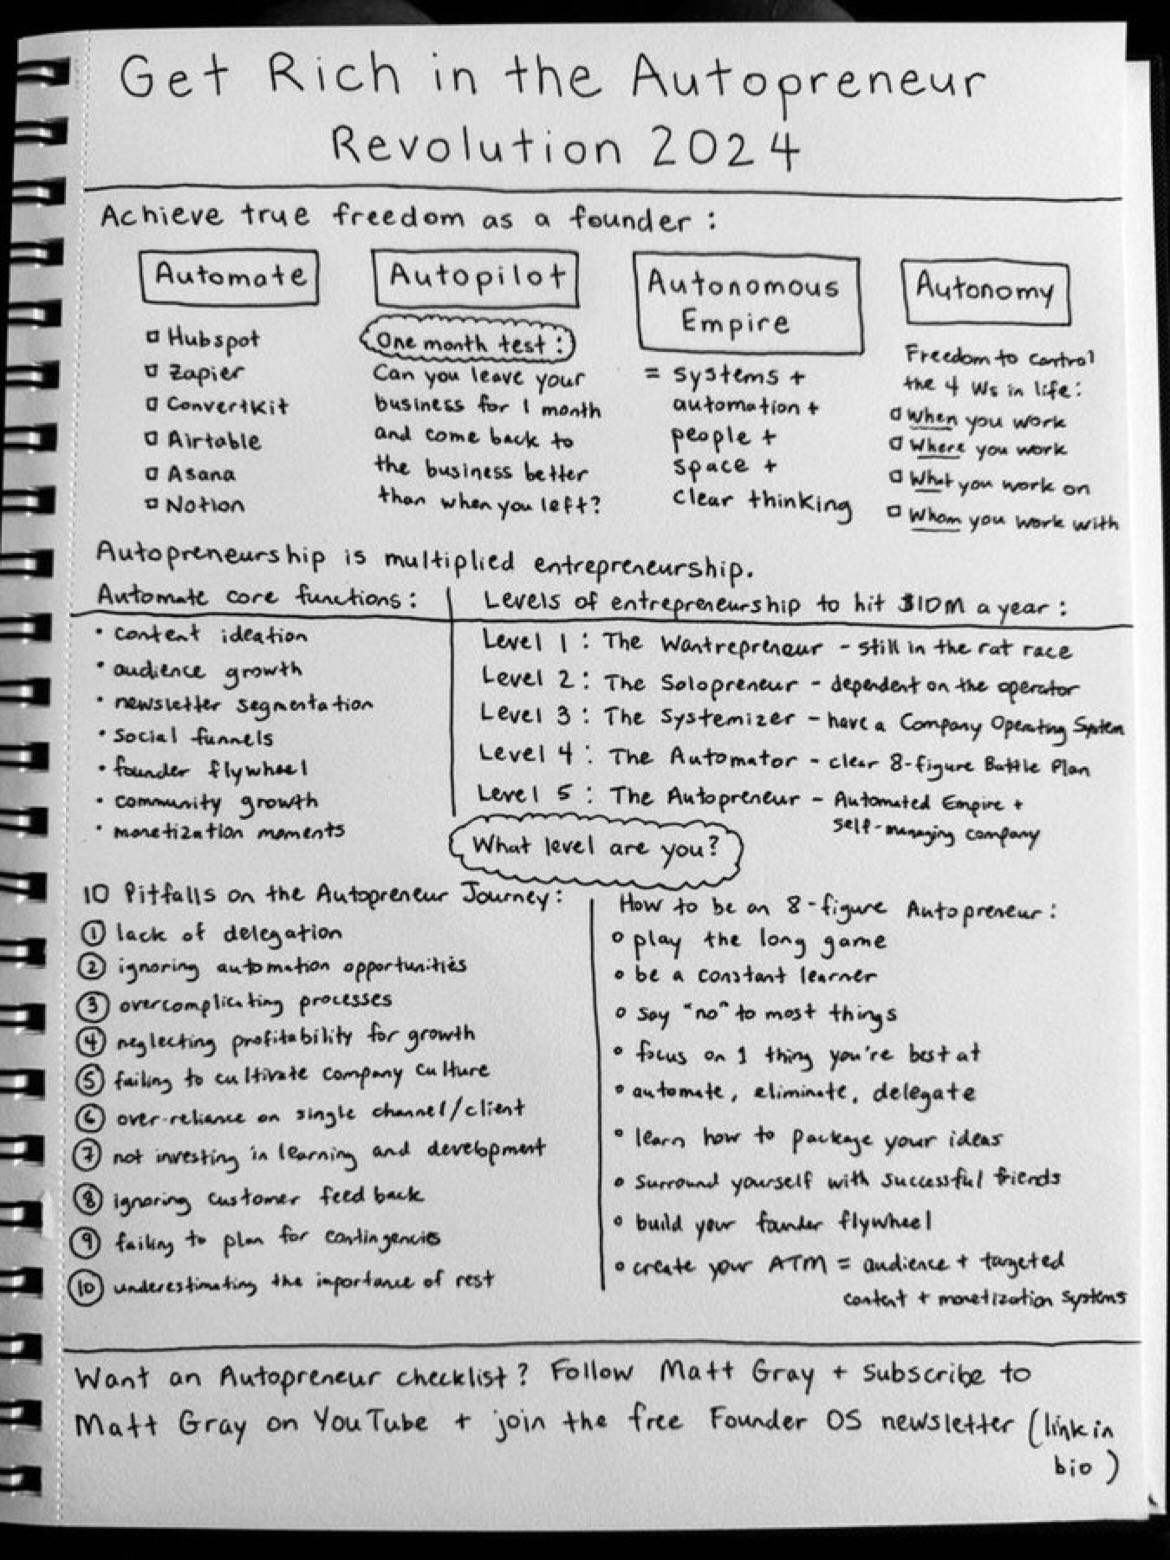 Get Rich in the Autopreneur
Revolution 2024
Achieve true freedom as a founder:
Automate
Hubspot
Zapier
ConvertKit
Airtable
Asana
Notion
Autopilot
One month test:
Can you leave your
business for 1 month
and come back to
the business better
than when you left?
Autonomous
Empire
= systems +
automation +
people +
space +
clear thinking
Autonomy
Freedom to control
the 4 Ws in life:
When you work
Where you work
What you work on
Whom you work with
Autopreneurship is multiplied entrepreneurship.
Automate core functions:
• content ideation
• audience growth
• newsletter segmentation
• social funnels
• founder flywheel
• community growth
• monetization moments
Levels of entrepreneurship to hit $10M a year:
Level 1: The Wantrepreneur - still in the rat race
Level 2: The Solopreneur - dependent on the operator
Level 3: The Systemizer - have a Company Operating System
Level 4: The Automator - clear 8-figure Battle Plan
Level 5: The Autopreneur - Automated Empire +
self-managing company
What level are you?
10 Pitfalls on the Autopreneur Journey:
1 lack of delegation
2 ignoring automation opportunities
3 overcomplicating processes
4 neglecting profitability for growth
5 failing to cultivate company culture
6 over-reliance on single channel/client
7 not investing in learning and development
8 ignoring customer feedback
9 failing to plan for contingencies
10 underestimating the importance of rest
How to be an 8-figure Autopreneur:
• play the long game
• be a constant learner
• say "no" to most things
• focus on 1 thing you're best at
• automate, eliminate, delegate
• learn how to package your ideas
• surround yourself with successful friends
• build your founder flywheel
• create your ATM = audience + targeted
content + monetization systems
Want an Autopreneur checklist? Follow Matt Gray + subscribe to
Matt Gray on YouTube + join the free Founder OS newsletter (link in
bio)